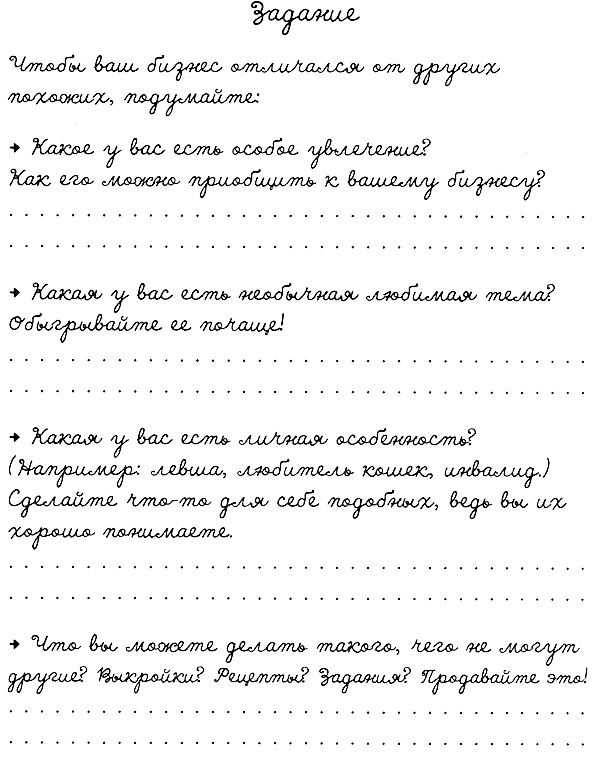 Задание
Чтобы ваш бизнес отличался от других
похожих, подумайте:
→ Какое у вас есть особое увлечение?
Как его можно приобщить к вашему бизнесу?
→ Какая у вас есть необычная любимая тема?
Обыгрывайте ее почаще!
→ Какая у вас есть личная особенность?
(Например: левша, любитель кошек, инвалид.)
Сделайте что-то для себе подобных, ведь вы их
хорошо понимаете.
→ Что вы можете делать такого, чего не могут
другие? Выкройки? Рецепты? Задания? Продавайте это!